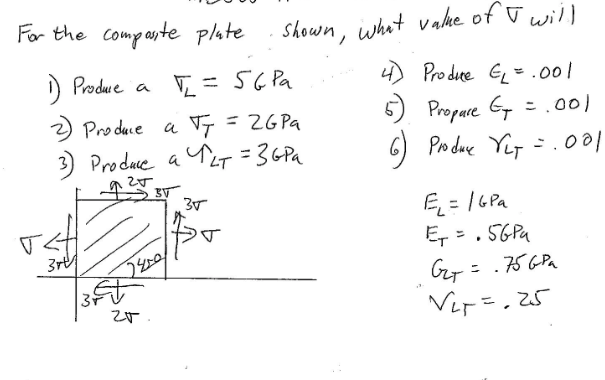 For the composite plate shown, what value of σ will
1) Produce a σL = 5GPa
2) Produce a σT = 2GPa
3) Produce a τLT = 3GPa
4) Produce ϵL = .001
5) Propare ϵT = .001
6) Produce γLT = .001
2σ
3σ
3σ
σ
σ
3σ
45°
3σ
2σ
EL = 1GPa
ET = .5GPa
GLT = .75GPa
νLT = .25